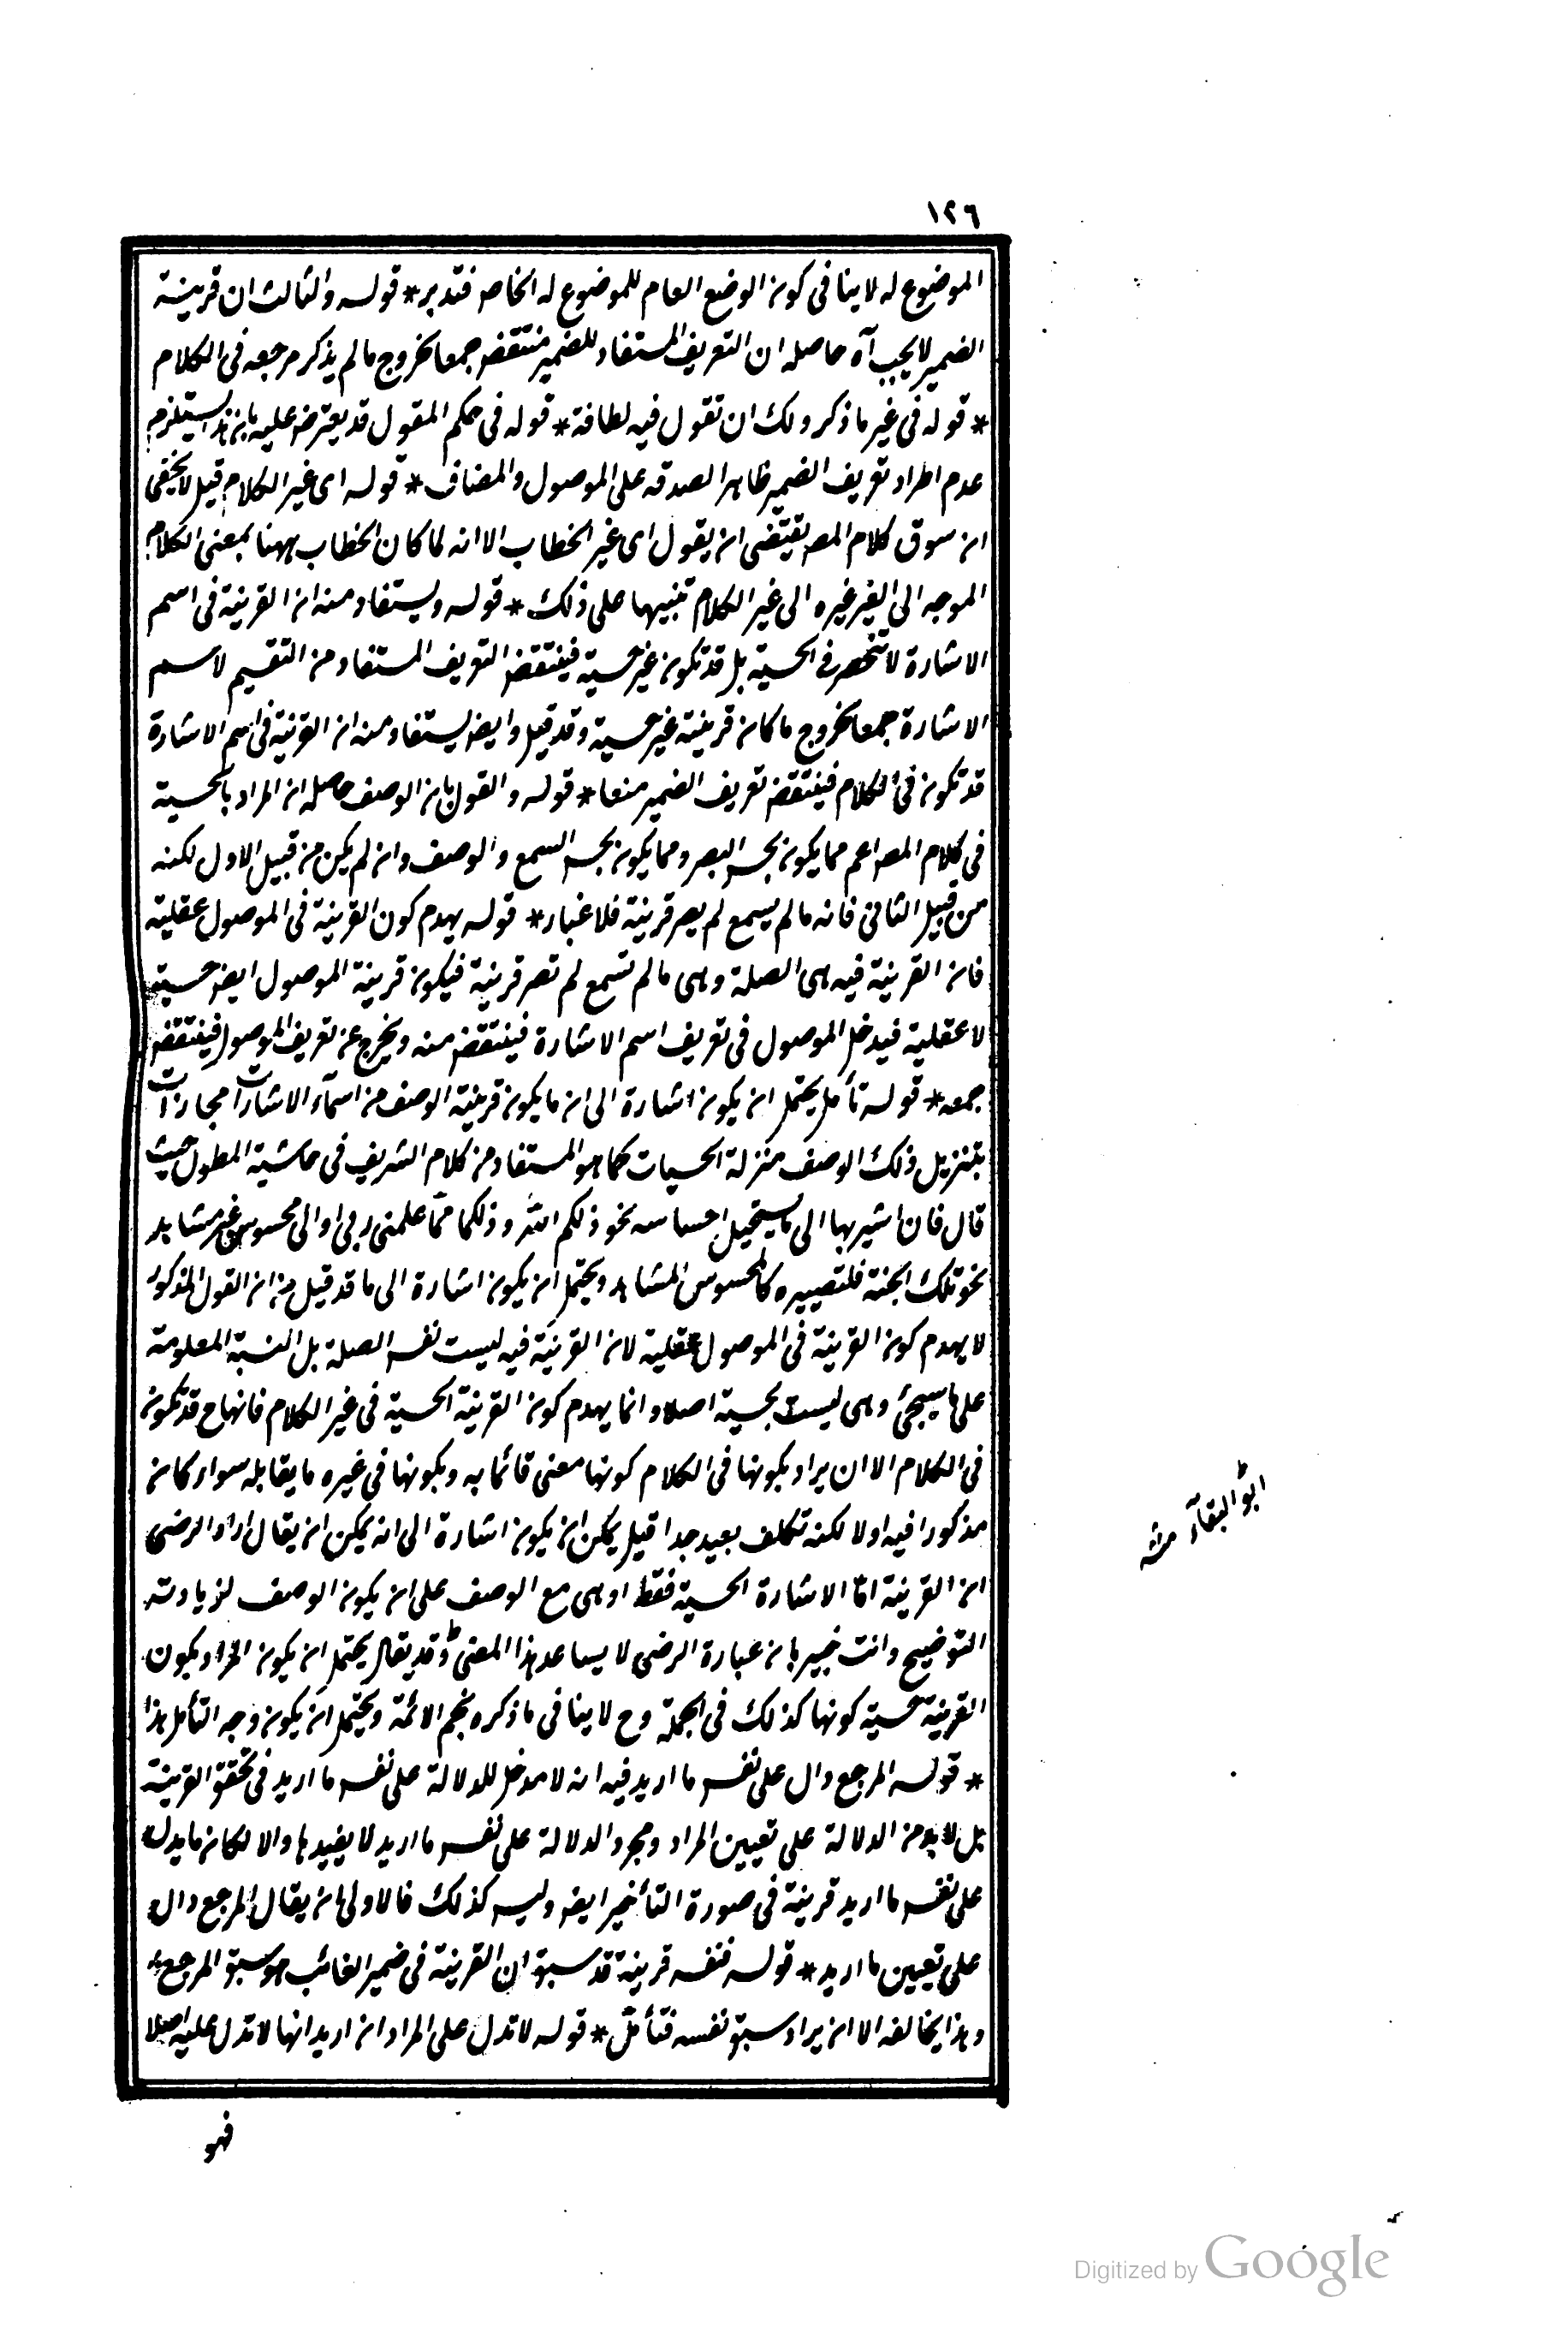 ١٢٦
الموضوع له لا ينافى كون الوضع العام للموضوع له الخاص فتدبر * قوله والثالث ان قرينة
الضمير لا يجب آه حاصله ان التعريف المستفاد للضمير منتقض جمعا بخروج ما لم يذكر مرجعه فى الكلام
* قوله فى غير ما ذكر ولك ان تقول فيه لطافة * قوله فى حكم المقول قد يعترض عليه بان هذا يستلزم
عدم اطراد تعريف الضمير ظاهرا لصدقه على الموصول والمضاف * قوله اى غير الكلام قيل لا يخفى
ان سوق كلام المص يقتضى ان يقول اى غير الخطاب الا انه لما كان الخطاب ههنا بمعنى الكلام
الموجه الى الغير غيره الى غير الكلام تنبيها على ذلك * قوله ويستفاد منه ان القرينة فى اسم
الاشارة لا تنحصر فى الحسية بل قد تكون غير حسية فينتقض التعريف المستفاد من التقسيم لاسم
الاشارة جمعا بخروج ما كان قرينته غير حسية وقد قيل وايض يستفاد منه ان القرينة فى اسم الاشارة
قد تكون فى الكلام فينتقض تعريف الضمير منعا * قوله والقول بان الوصف حاصله ان المراد بالحسية
فى كلام المص اعم مما يكون بحس البصر ومما يكون بحس السمع والوصف وان لم يكن من قبيل الاول لكنه
من قبيل الثانى فانه ما لم يسمع لم يصر قرينة فلا غبار * قوله يهدم كون القرينة فى الموصول عقلية
فان القرينة فيه هى الصلة وهى ما لم تسمع لم تصر قرينة فيكون قرينة الموصول ايض حسية
لا عقلية فيدخل الموصول فى تعريف اسم الاشارة فينتقض منه ويخرج عن تعريف الموصول فينتقض
جمعه * قوله تأمل يحتمل ان يكون اشارة الى ان ما يكون قرينته الوصف من اسماء الاشارات مجازات
بتنزيل ذلك الوصف منزلة الحسيات كما هو المستفاد من كلام الشريف فى حاشية المطول حيث
قال فان اشير بها الى ما يستحيل احساسه نحو ذلكم الله وذلكما مما علمنى ربى او الى محسوس غير مشاهد
نحو تلك الجنة فلتصييره كالمحسوس المشاهد ويحتمل ان يكون اشارة الى ما قد قيل من ان القول المذكور
لا يهدم كون القرينة فى الموصول عقلية لان القرينة فيه ليست نفس الصلة بل النسبة المعلومة
على ما سيجئ وهى ليست بحسية اصلا وانما يهدم كون القرينة الحسية فى غير الكلام فانها ح قد تكون
فى الكلام الا ان يراد بكونها فى الكلام كونها معنى قائما به وبكونها فى غيره ما يقابله سواء كان
مذكورا فيه اولا لكنه تكلف بعيد جدا قيل يمكن ان يكون اشارة الى انه يمكن ان يقال اراد الرضى
ان القرينة اما الاشارة الحسية فقط او هى مع الوصف على ان يكون الوصف لزيادته
التوضيح وانت خبير بان عبارة الرضى لا يساعد هذا المعنى وقد يقال يحتمل ان يكون المراد بكون
القرينة حسية كونها كذلك فى الجملة وح لا ينافى ما ذكره نجم الائمة ويحتمل ان يكون وجه التأمل هذا
* قوله المرجع دال على نفس ما اريد فيه انه لا مدخل للدلالة على نفس ما اريد فى تحقق القرينة
بل لا بد من الدلالة على تعيين المراد ومجرد الدلالة على نفس ما اريد لا يفيدها والا لكان ما يدل
على نفس ما اريد قرينة فى صورة التأخير ايض وليس كذلك فالاولى ان يقال المرجع دال
على تعيين ما اريد * قوله فنفسه قرينة قد سبق ان القرينة فى ضمير الغائب هو سبق المرجع
وهذا يخالفه الا ان يراد سبق نفسه فتأمل * قوله لا تدل على المراد ان اريد انها لا تدل عليه اصلا
فهو
ابو البقاء منه
Digitized by Google